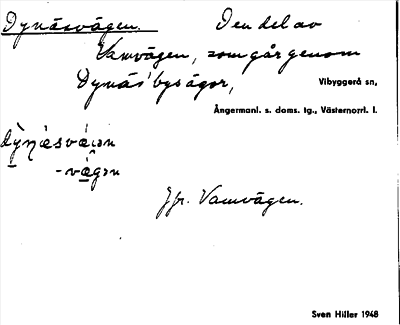 Dynäsvägen. Den del av
Vamvägen, som går genom
Dynäs' bys ägor,
Vibyggerå sn,
Ångermanl. s. doms. tg., Västernorrl. l.
-vägɜn
Jfr. Vamvägen.
Sven Hiller 1948